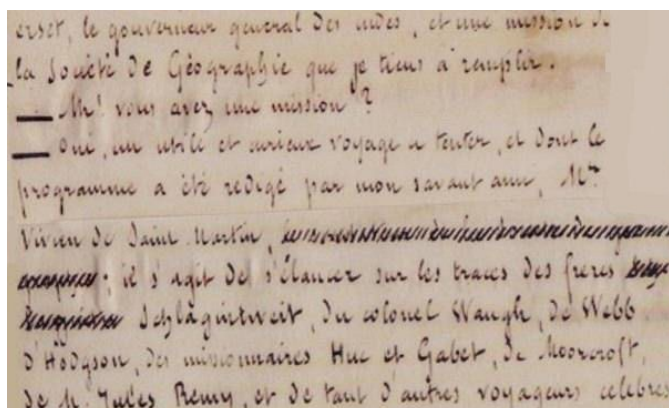 erset, le gouverneur general des indes, et une mission de
la Société de Géographie que je tiens à remplir.
— Ah! vous avez une mission?
— Oui, un utile et curieux voyage a tenter, et dont le
programme a été redigé par mon savant ami, Mr
Vivien de Saint Martin,
; il s'agit de s'élancer sur les traces des freres
Schlagintweit, du colonel Waugh, de Webb
d'Hodgson, des missionnaires Huc et Gabet, de Moorcroft,
de M. Jules Remy, et de tant d'autres voyageurs celebres